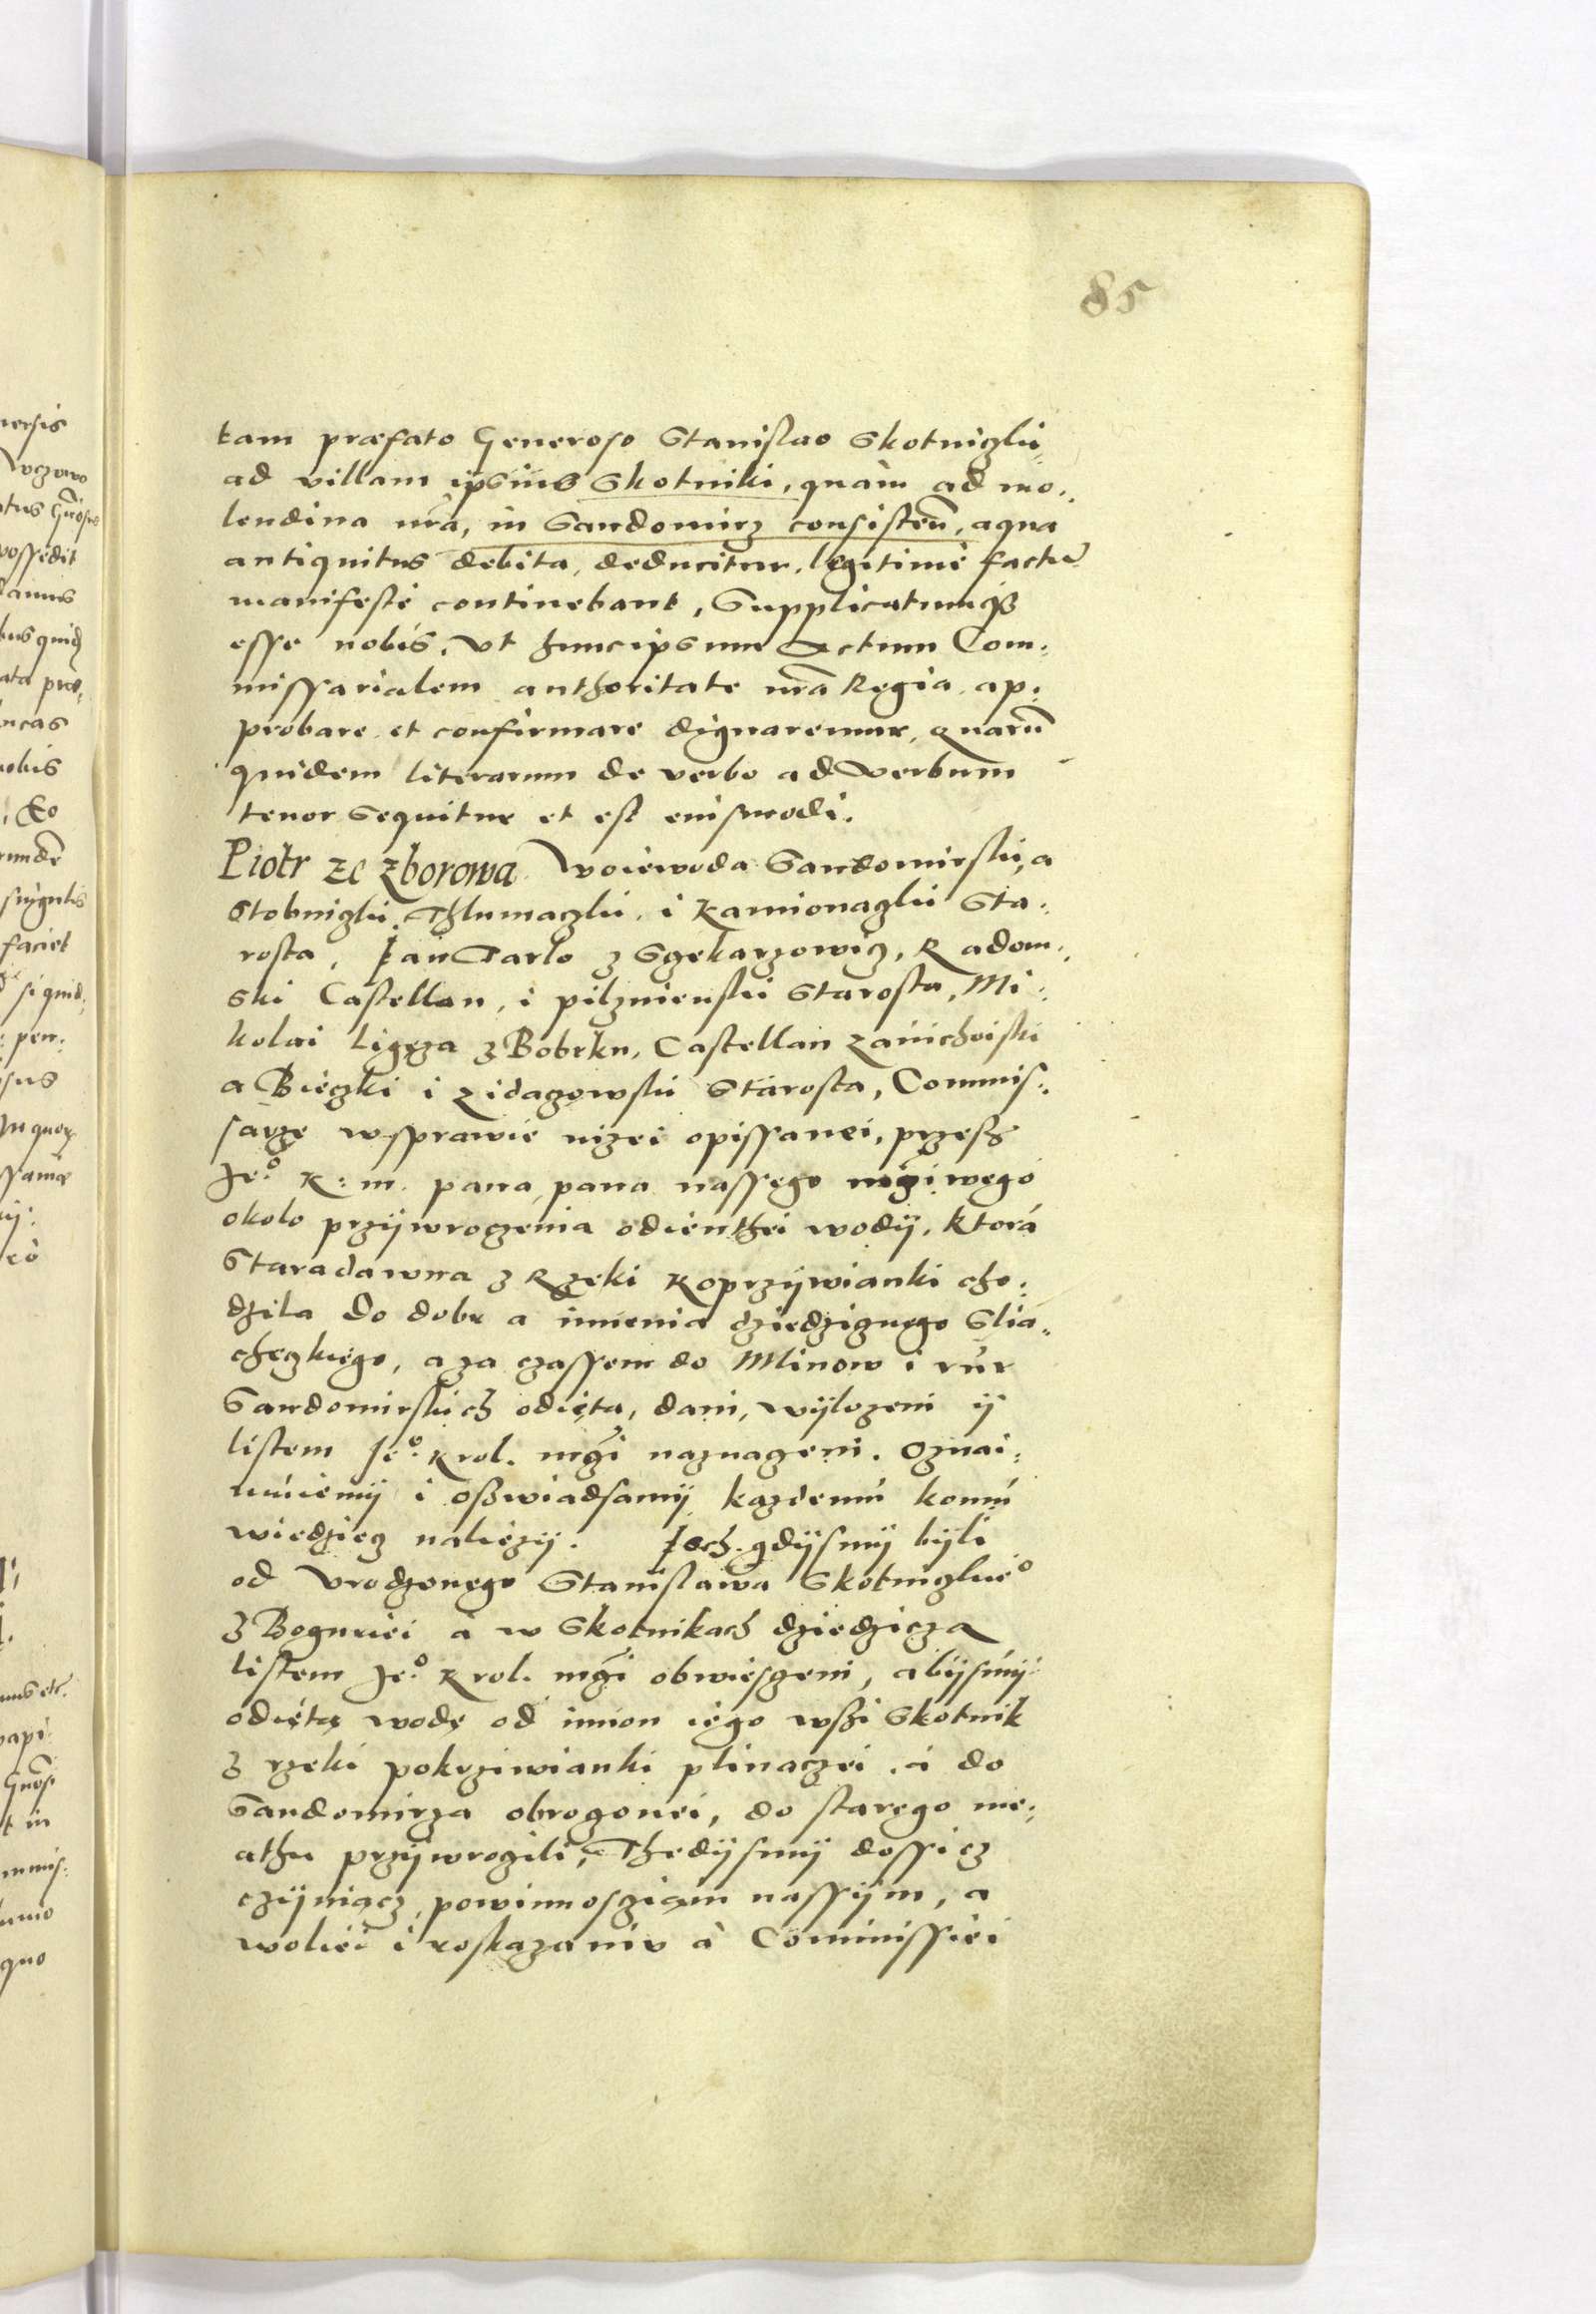 85
tam præfato Generoso Stanislao Skotniczki
ad villam ipsius Skotniki, quàm ad mo:
lendina nr̃a, in Sandomirz consisteñ, aqua
antiquitus debita, deducitur, legitimè factũ
manifestè continebant, Supplicatumq3
esse nobis, vt hunc ipsum Actum Com:
missarialem authoritate nr̃a Regia ap:
probare et confirmare dignaremur, quarũ
quidem literarum de verbo ad verbum
tenor sequitur et est eiusmodi.
Piotr ze Zborowa Woiewoda Sandomirski, a
Stobniczki, Thlumaczki, i Kamionaczki Sta:
rosta, Jan Tarlo z Sczekarzowicz, Radom:
ski Castellan, i pilznienski Starosta, Mi:
kolai Ligęza z Bobrku, Castellan Zawichoiski
a Bieczki i Zidaczowski Starosta, Commis:
sarze w sprawie nizei opissanei, przesz
Je:º K: m. pana, pana nassego mgiwego
okolo przÿwroczenia odienthei wodÿ, ktorá
Staradawna z Rzeki Koprzÿwianki cho:
dzila do dobr a imienia dziedzicznego Slia:
checzkiego, a za czassem do Mlinow i rúr
Sandomirskich odięta, dani, wÿlozeni ÿ
listem Je:º Krol. mči naznaczeni. Oznai:
muiemÿ i oßwiadsamÿ kazdemú komú
wiedziecz nalieżÿ. Jsch gdÿsmÿ bÿli
od Vrodzonego Stanislawa Skotniczkieº
z Boguriei à w Skotnikach dziedzicza
listem Je:º Krol. mči obwiesczeni, abÿsmÿ
odiętą wodę od imion iego wßi Skotnik
z rzeki pokrziwianki plinaczei, à do
Sandomirza obroczonei, do starego me:
athu przÿwroczili, Thedÿsmÿ dossicz
czÿniącz powinnosciąm nassÿm, a
woliei i roskazaniu à Commissiei